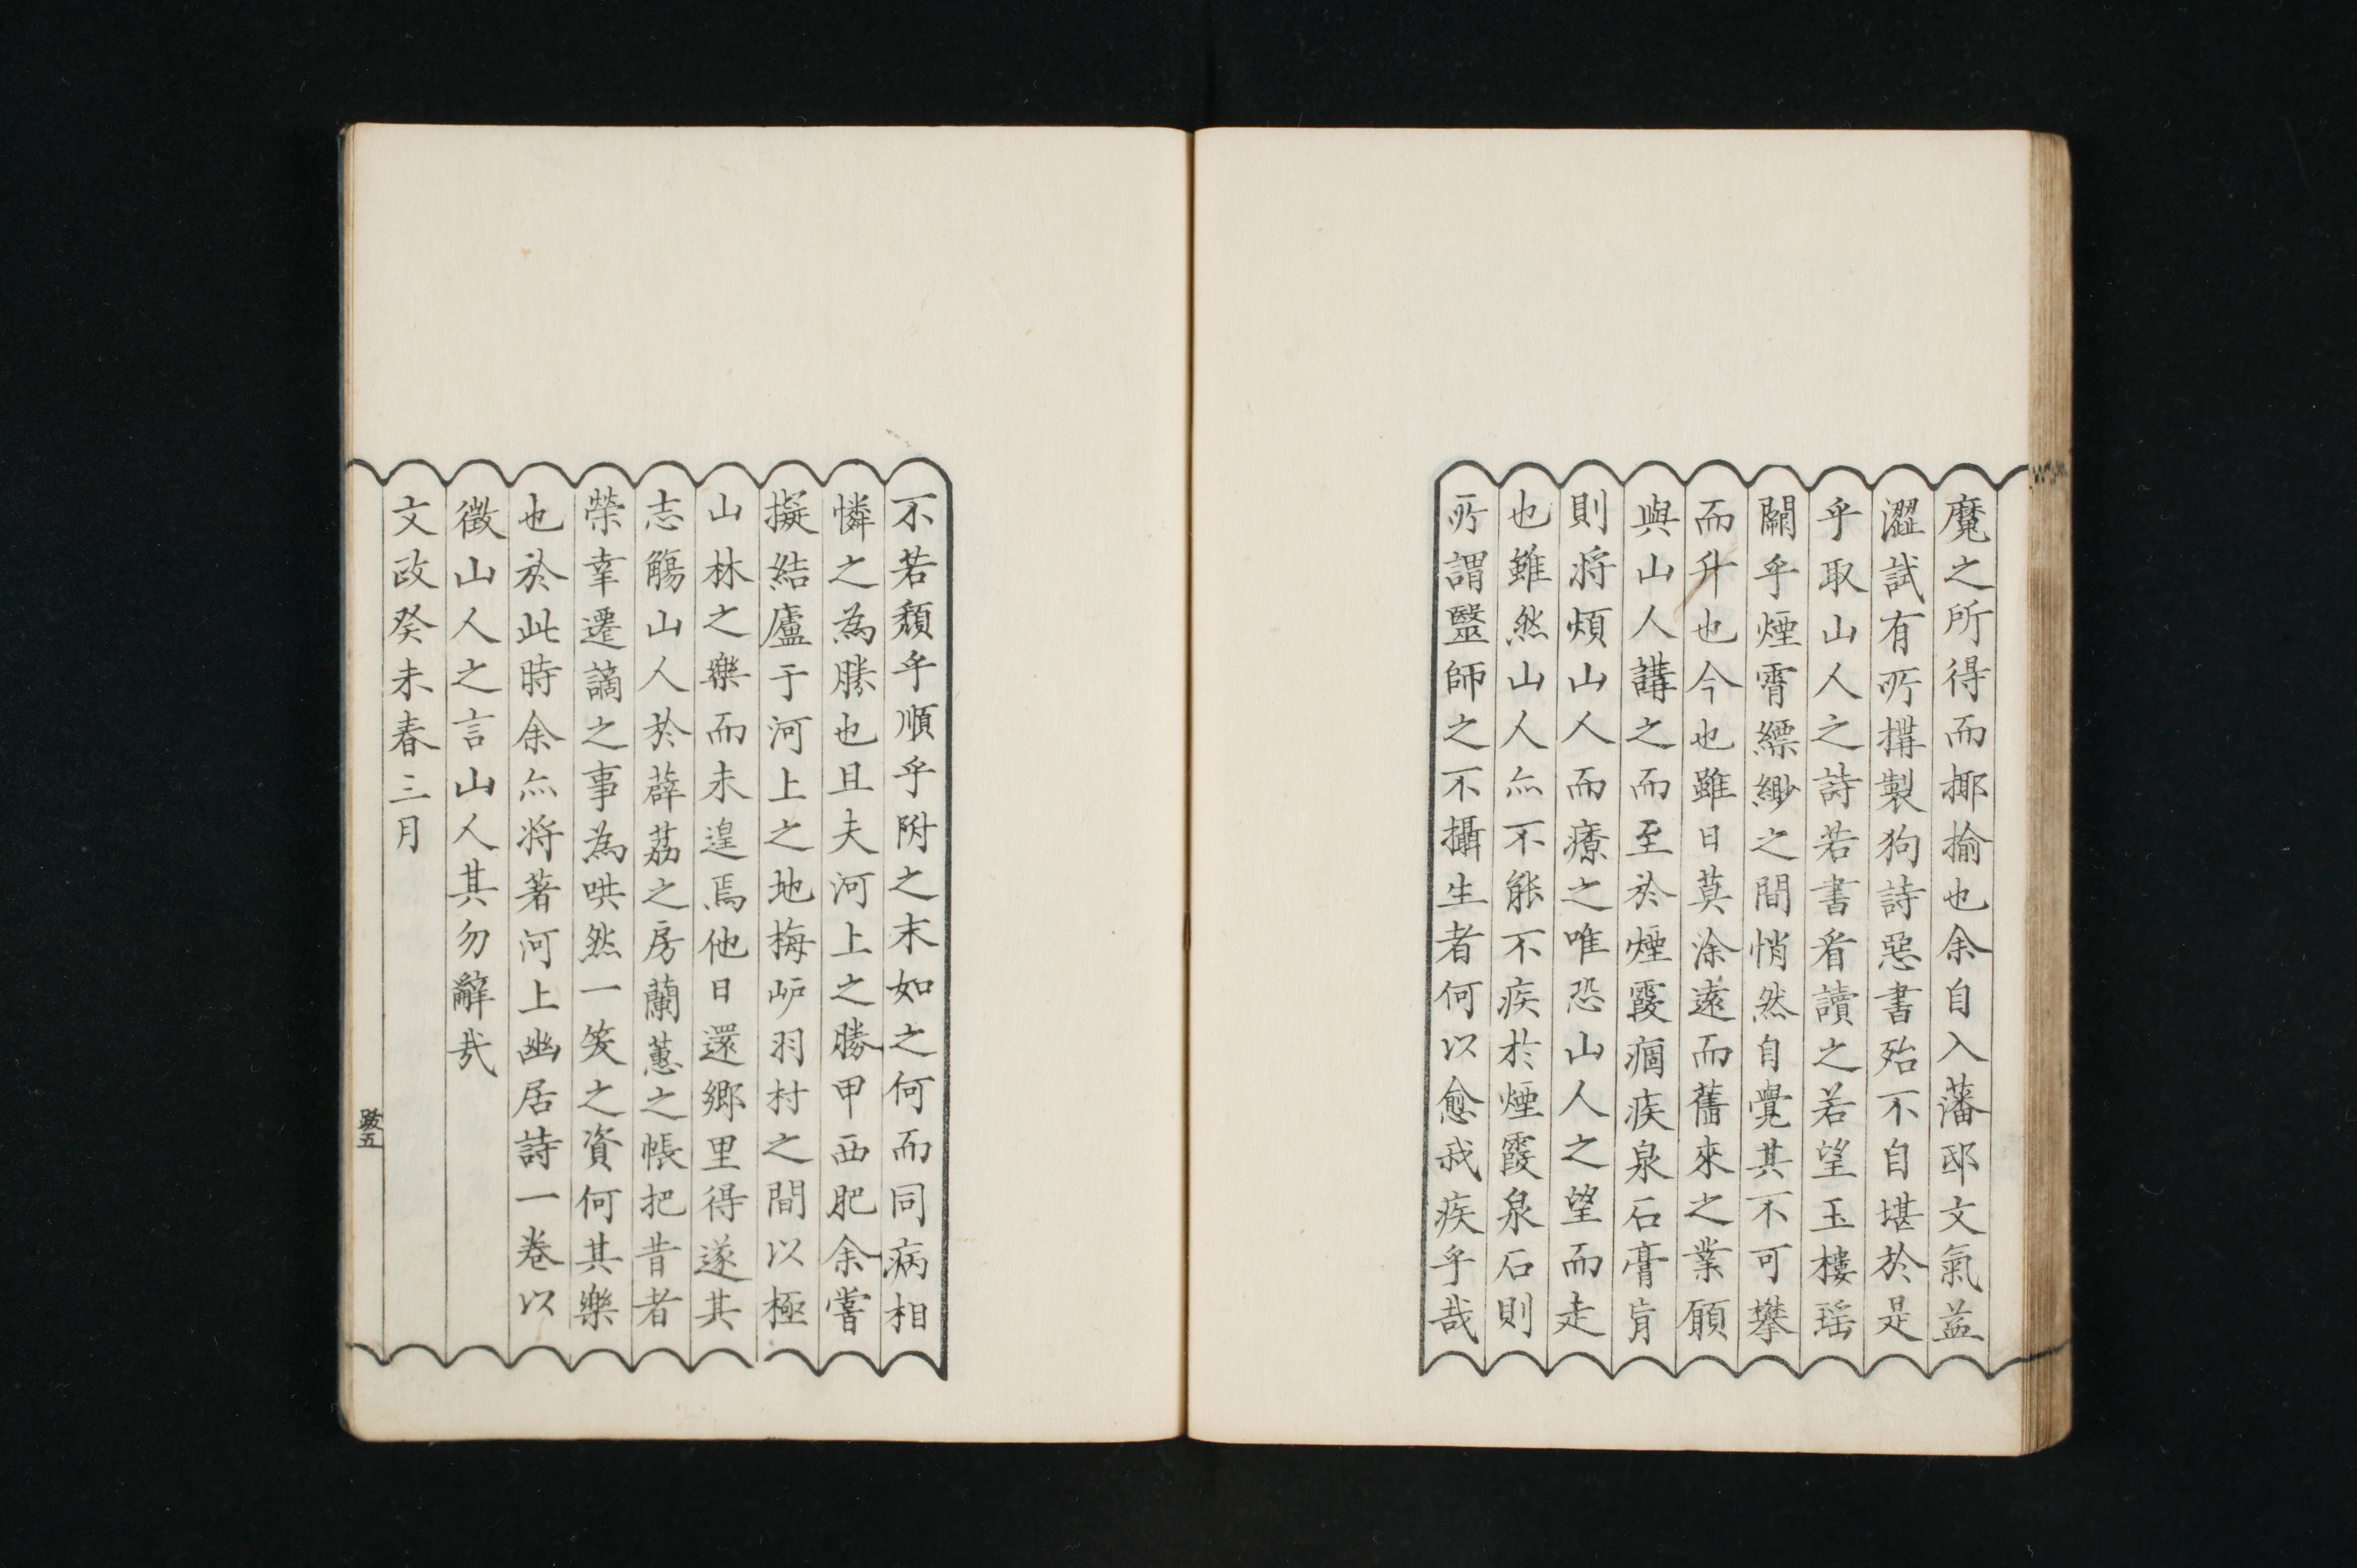 魔之所得而揶揄也余自入藩邸文氣益
澀試有所搆製狗詩惡書殆不自堪於是
乎取山人之詩若書看讀之若望玉樓瑶
闕乎煙霄縹緲之間悄然自覺其不可攀
而升也今也雖日莫涂遠而舊來之業願
與山人講之而至於煙霞痼疾泉石膏肓
則將煩山人而療之唯恐山人之望而走
也雖然山人亦不能不疾於煙霞泉石則
所謂毉師之不攝生者何以愈我疾乎哉
不若頽乎順乎附之末如之何而同病相
憐之為勝也且夫河上之勝甲西肥余嘗
擬結廬于河上之地梅㟁羽村之間以極
山林之樂而未遑焉他日還鄉里得遂其
志觴山人於薜茘之房蘭蕙之帳把昔者
榮幸遷謫之事為哄然一笑之資何其樂
也於此時余亦將著河上幽居詩一卷以
徵山人之言山人其勿辭哉
文政癸未春三月
跋五